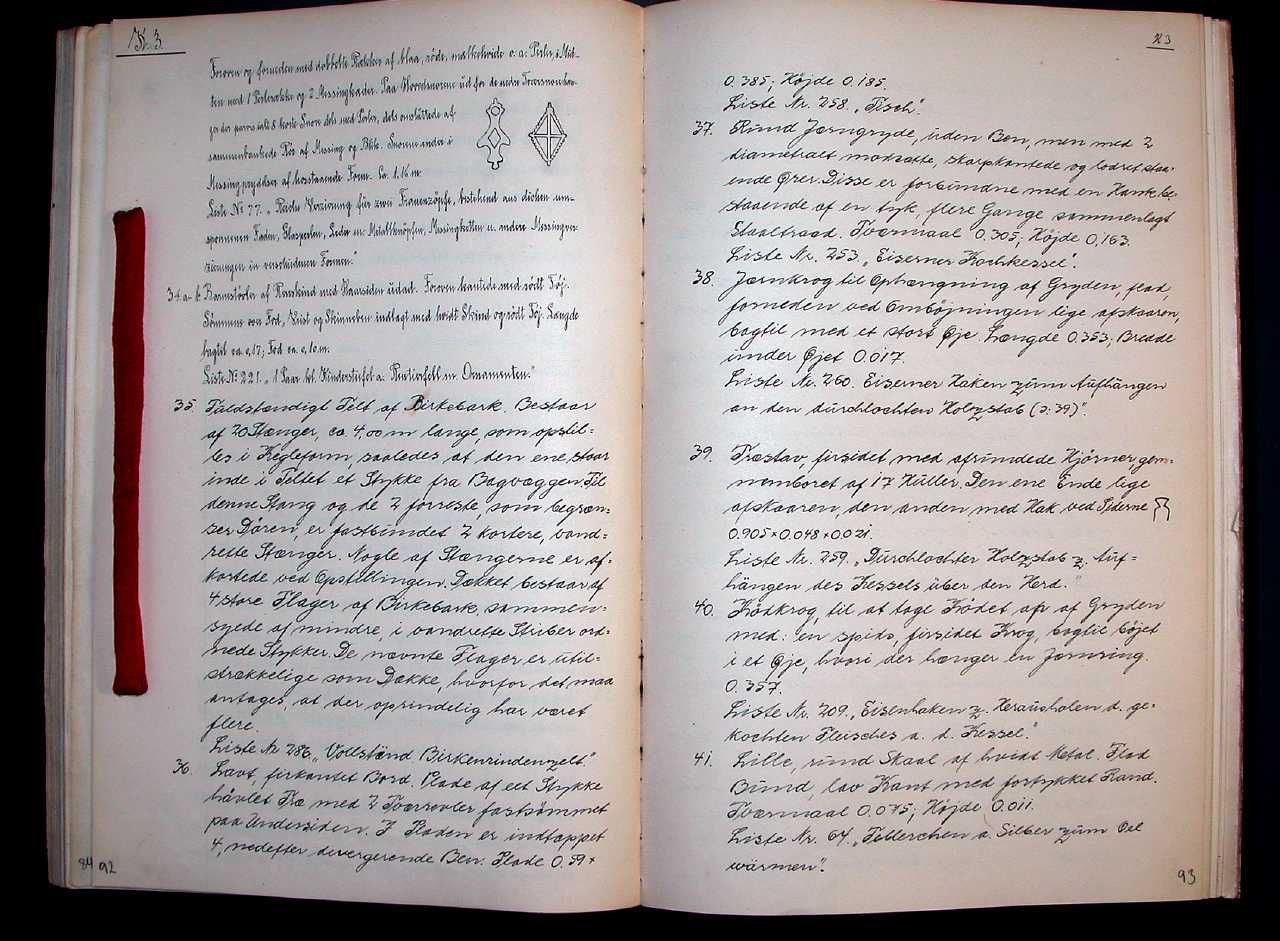 K. 3.
Foroven og forneden med dobbelte Rækker af blaa, röde, mælkehvide o. a. Perler, i Mid-
ten med 1 Perlerække og 2 Messingkæder. Paa
ger der parvis ialt 8 korte Snore dels med Perler, dels omsluttede af
sammenbankede Rör af Messing og Blik. Snorene ender i
Messingprydelser af hosstaaende Form. Ca. 1.16 m.
Liste No 77. „Reiche Verzierung für zwei Frauenzöpfe, bestehend aus dicken um-
sponnenen Faden, Glasperlen, Leder m. Metallknöpfen, Messingketten u. andere Messingver-
zierungen in verschiedenen Formen."
34 a-b Barnestövler af Renskind med Haarsiden udad. Foroven kantede med rödt Töj.
Sömmene over Fod, Vrist og Skinneben indlagt med hvidt Skind og rödt Töj. Længde
bagtil ca. 0,17; Fod ca. 0,10 m.
Liste No 221. „1 Paar kl. Kinderstiefel a. Rentierfell m. Ornamenten."
35. Fuldstændigt Telt af Birkebark. Bestaar
af 20 Stænger, ca. 4,00 m lange, som opstil-
les i Kegleform, saaledes at den ene staar
inde i Teltet et Stykke fra Bagvæggen. Til
denne Stang og de 2 forreste, som begræn-
ser Dören, er fastbundet 2 kortere, vand-
rette Stænger. Nogle af Stængerne er af-
kortede ved Opstillingen. Dækket bestaar af
4 store Flager af Birkebark, sammen-
syede af mindre, i vandrette Striber ord-
nede Stykker. De nævnte Flager er util-
strækkelige som Dække, hvorfor det maa
antages, at der oprindelig har været
flere.
Liste Nr 286. „Vollständ Birkenrindenzelt."
36. Lavt, firkantet Bord. Plade af eet Stykke
hövlet Træ med 2 Tværrevler fastsömmet
paa Undersiden. I Pladen er indtappet
4, nedefter divergerende Ben. Plade 0.59 ×
84 92
K3
0.385; Höjde 0.185.
Liste Nr. 258. „Tisch".
37. Rund Jærngryde, uden Ben, men med 2
diametralt modsatte, skarpkantede og lodret staa-
ende Ører. Disse er forbundne med en Hank be-
staaende af en tyk, flere Gange sammenlagt
Staaltraad. Tværmaal 0.305; Höjde 0.163.
Liste Nr. 253. „Eiserner Kochkessel".
38. Jærnkrog til Ophængning af Gryden, flad,
forneden ved Ombøjningen lige afskaaren,
bagtil med et stort Øje. Længde 0.353; Bredde
under Øjet 0.017.
Liste Nr. 260. Eiserner Haken zum Aufhängen
an den durchlochten Holzstab (ɔ: 39)".
39. Træstav, firsidet med afrundede Hjörner, gen-
nemboret af 17 Huller. Den ene Ende lige
afskaaren, den anden med Hak ved Siderne
0.905 × 0.048 × 0.021.
Liste Nr. 259. „Durchlochter Holzstab z. Auf-
hängen des Kessels über den Herd."
40. Ködkrog, til at tage Ködet op af Gryden
med: en spids, firsidet Krog, bagtil böjet
i et Øje, hvori der hænger en Jærnring.
0.357.
Liste Nr. 209. „Eisenhaken z. Herausholen d. ge-
kochten Fleisches a. d. Kessel."
41. Lille, rund Skaal af hvidt Metal. Flad
Bund, lav Kant med fortykket Rand.
Tværmaal 0.075; Höjde 0.011.
Liste Nr. 64. „Tellerchen a. Silber zum Oel
wärmen".
93